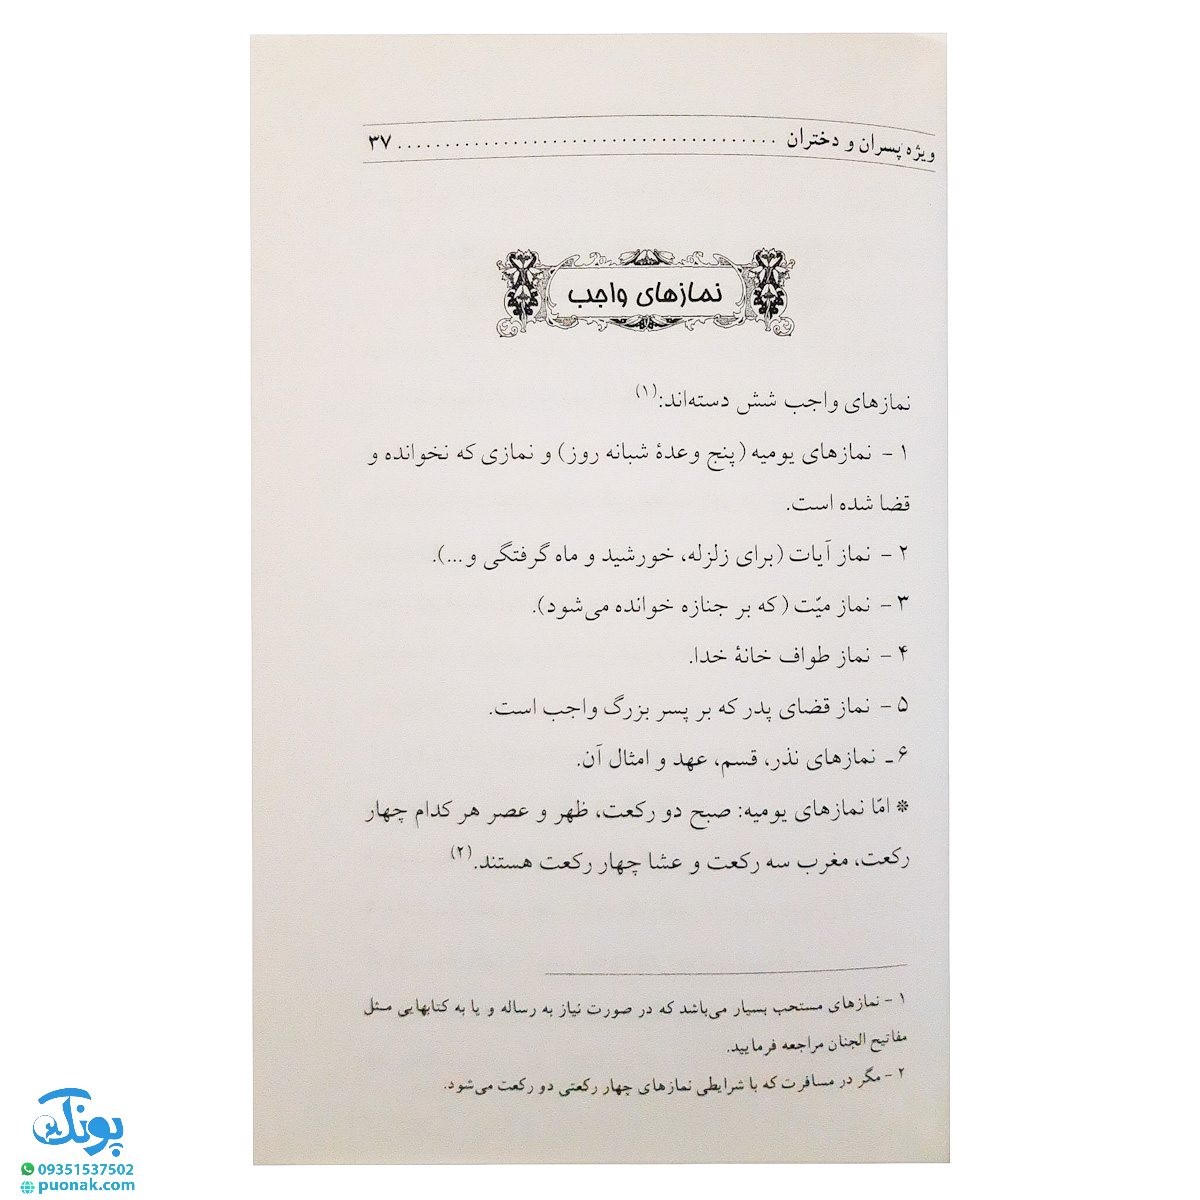 ویژه پسران و دختران ........................................ ۳۷
نمازهای واجب
نمازهای واجب شش دسته‌اند:(۱)
۱ - نمازهای یومیه (پنج وعدهٔ شبانه روز) و نمازی که نخوانده و
قضا شده است.
۲ - نماز آیات (برای زلزله، خورشید و ماه گرفتگی و ...).
۳ - نماز میّت (که بر جنازه خوانده می‌شود).
۴ - نماز طواف خانهٔ خدا.
۵ - نماز قضای پدر که بر پسر بزرگ واجب است.
۶ ـ نمازهای نذر، قسم، عهد و امثال آن.
* امّا نمازهای یومیه: صبح دو رکعت، ظهر و عصر هر کدام چهار
رکعت، مغرب سه رکعت و عشا چهار رکعت هستند.(۲)
۱ - نمازهای مستحب بسیار می‌باشد که در صورت نیاز به رساله و یا به کتابهایی مثل
مفاتیح الجنان مراجعه فرمایید.
۲ - مگر در مسافرت که با شرایطی نمازهای چهار رکعتی دو رکعت می‌شود.
پونک
09351537502
puonak.com